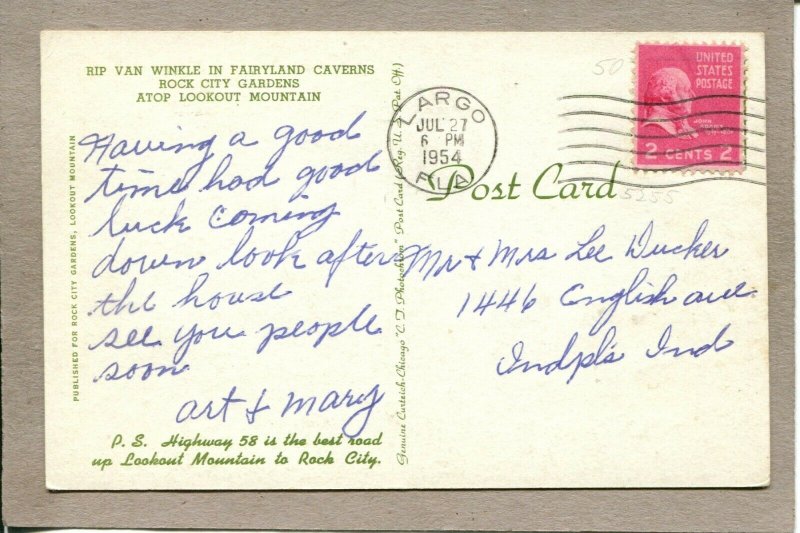 RIP VAN WINKLE IN FAIRYLAND CAVERNS
ROCK CITY GARDENS
ATOP LOOKOUT MOUNTAIN
Having a good
time had good
luck coming
down look after
the house
see you people
soon
Art & Mary
P. S. Highway 58 is the best road
up Lookout Mountain to Rock City.
PUBLISHED FOR ROCK CITY GARDENS, LOOKOUT MOUNTAIN
Genuine Curteich-Chicago "C. T. Photochrom" Post Card (Reg. U. S. Pat. Off.)
LARGO
JUL 27
6 PM
1954
FLA
50
UNITED
STATES
POSTAGE
JOHN
2 CENTS 2
Post Card
5255
Mr & Mrs Lee Ducker
1446 English ave
Indpl's Ind